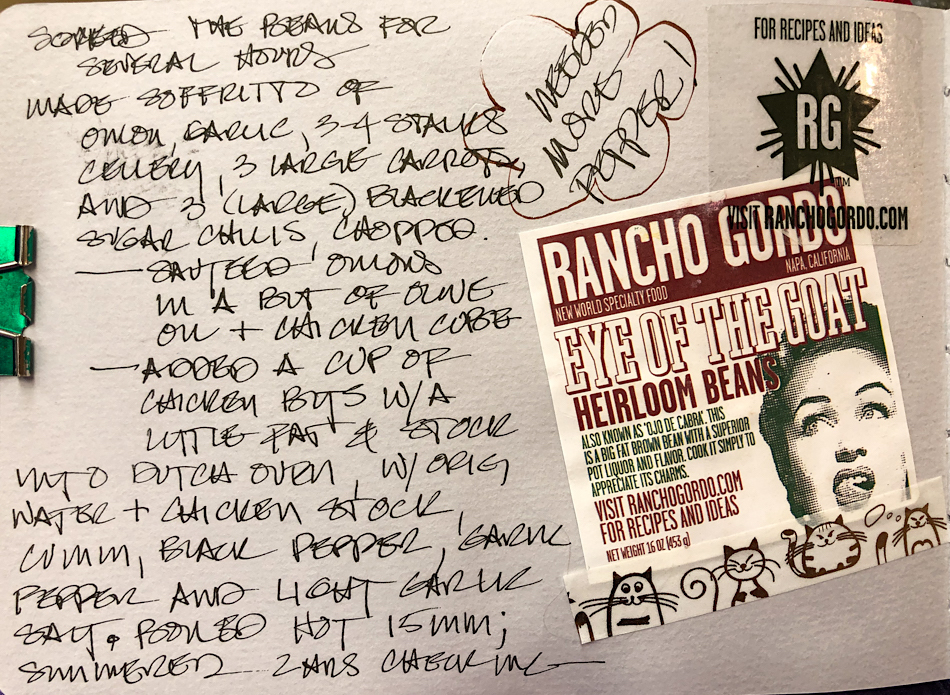 SOAKED THE BEANS FOR
SEVERAL HOURS
MADE SOFFRITTO OF
ONION, GARLIC, 3-4 STALKS
CELLERY, 3 LARGE CARROTS,
AND 3 (LARGE) BLACKENED
SUGAR CHILIS, CHOPPED.
— SAUTEED ONIONS
IN A BIT OF OLIVE
OIL + CHICKEN CUBE
— ADDED A CUP OF
CHICKEN BITS W/A
LITTLE FAT & STOCK
INTO DUTCH OVEN, W/ORIG
WATER + CHICKEN STOCK,
CUMIN, BLACK PEPPER, GARLIC
PEPPER AND LIGHT GARLIC
SALT. BOILED HOT 15 MIN;
SIMMERED 2 HRS CHECKING
NEEDED
MORE
PEPPER!
FOR RECIPES AND IDEAS
RG
TM
VISIT RANCHOGORDO.COM
RANCHO GORDO
NAPA, CALIFORNIA
NEW WORLD SPECIALTY FOOD
EYE OF THE GOAT
HEIRLOOM BEANS
ALSO KNOWN AS 'OJO DE CABRA'. THIS
IS A BIG FAT BROWN BEAN WITH A SUPERIOR
POT LIQUOR AND FLAVOR. COOK IT SIMPLY TO
APPRECIATE ITS CHARMS.
VISIT RANCHOGORDO.COM
FOR RECIPES AND IDEAS
NET WEIGHT 16 OZ (453 g)